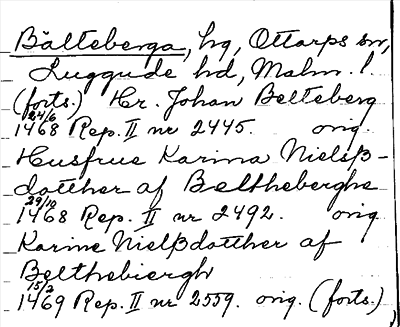 Bälteberga, hg, Ottarps sn,
Luggude hd, Malm. l.
(forts.) Hr. Johan Belteberg
24/6
1468 Rep. II nr 2445. orig.
Husfrue Karina Nielsß-
dotther af Beltheberghe
29/10
1468 Rep. II nr 2492. orig
Karine Nielßdotther af
Belthebiergh
15/2
1469 Rep. II nr 2559. orig. (forts.)